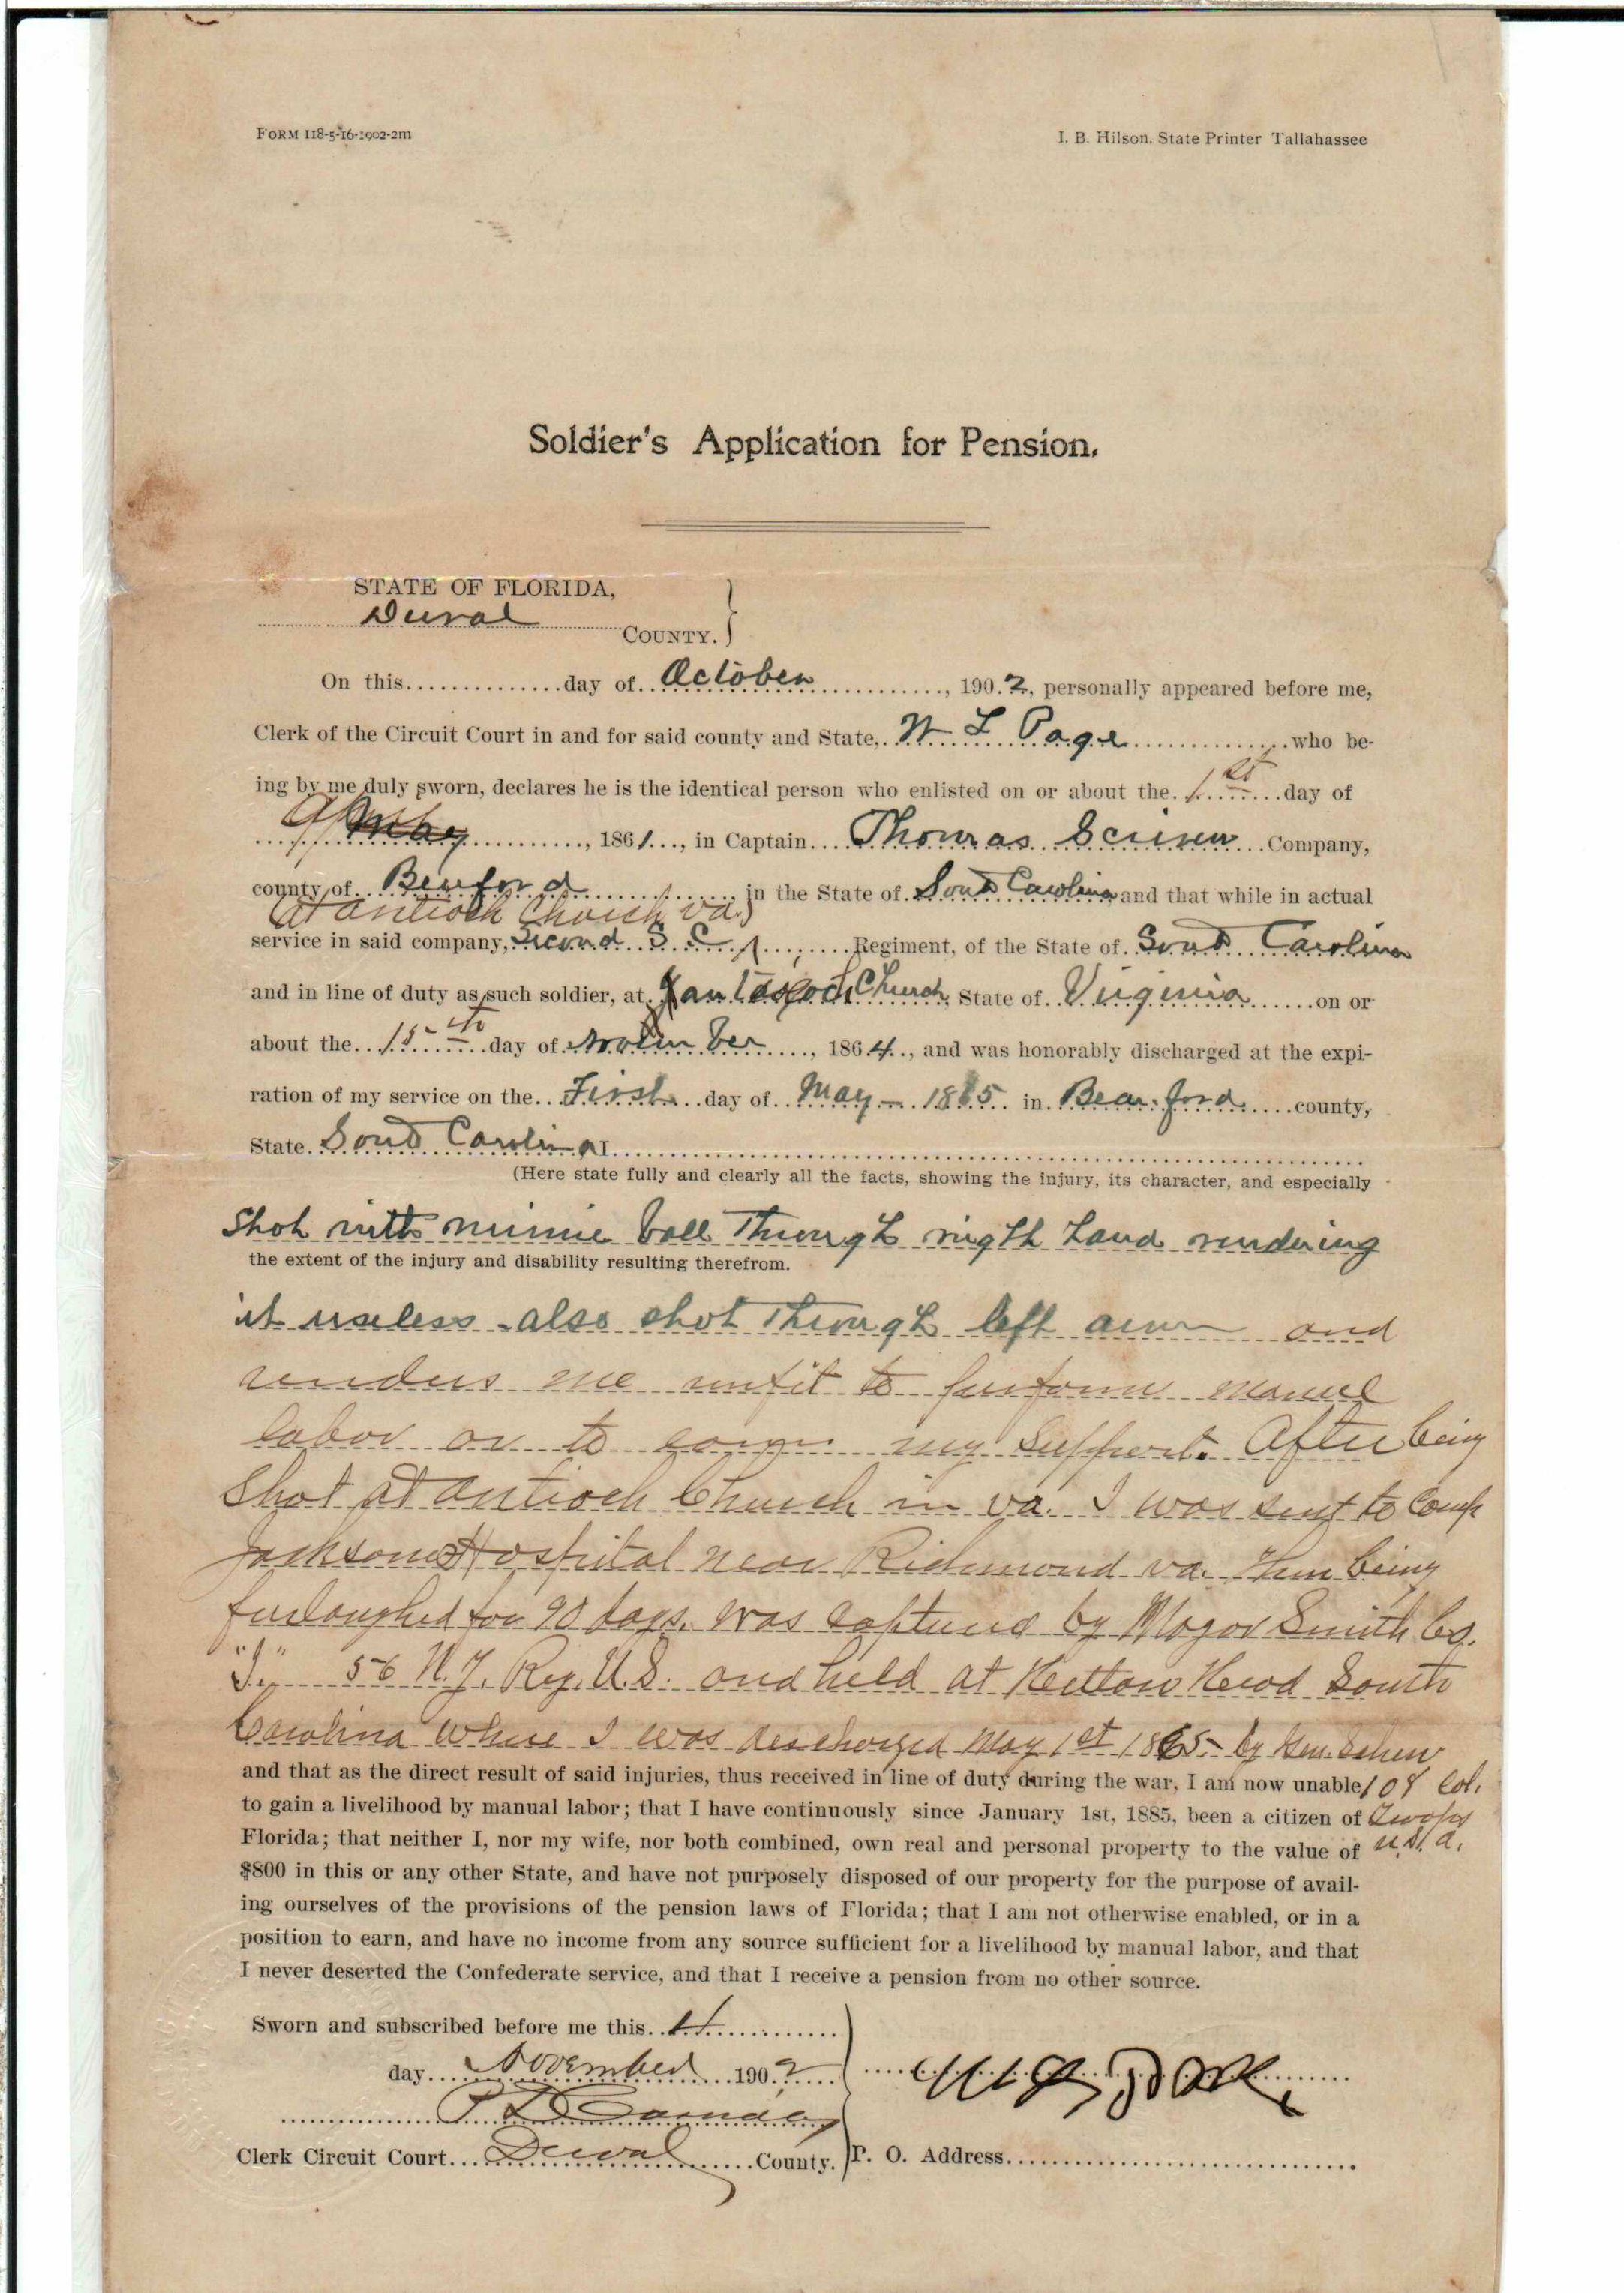 FORM 118-5-16-1902-2m
I. B. Hilson, State Printer Tallahassee
Soldier's Application for Pension.
STATE OF FLORIDA,
Duval COUNTY.
On this.............day of October, 1902, personally appeared before me,
Clerk of the Circuit Court in and for said county and State, W L Page who be-
ing by me duly sworn, declares he is the identical person who enlisted on or about the 1st day of
May, 1861, in Captain Thomas Company,
county of Beuford, in the State of South Carolina and that while in actual
(at Antioch Church Va.)
service in said company, Second S. C., Regiment, of the State of South Carolina
and in line of duty as such soldier, at Church, State of Virginia on or
about the 15th day of November, 1864, and was honorably discharged at the expi-
ration of my service on the First day of May 1865 in Beauford county,
State South Carolina I
(Here state fully and clearly all the facts, showing the injury, its character, and especially
Shot with minnie ball Through rigth hand rendering
the extent of the injury and disability resulting therefrom.
it useless also shot Through left arm and
renders me unfit to perform manuel
labor or to earn my support. After being
Shot at Antioch Church in Va. I was sent to Camp
Jackson Hospital near Richmond Va. Then being
furloughed for 90 days. was captured by Major Smith Co.
"I" 56 N.Y. Reg. U.S. and held at Hilton Head South
Carolina where I was descharged May 1st 1865 by Gen.
and that as the direct result of said injuries, thus received in line of duty during the war, I am now unable 108 Col.
to gain a livelihood by manual labor; that I have continuously since January 1st, 1885, been a citizen of Troops
Florida; that neither I, nor my wife, nor both combined, own real and personal property to the value of U.S.A.
$800 in this or any other State, and have not purposely disposed of our property for the purpose of avail-
ing ourselves of the provisions of the pension laws of Florida; that I am not otherwise enabled, or in a
position to earn, and have no income from any source sufficient for a livelihood by manual labor, and that
I never deserted the Confederate service, and that I receive a pension from no other source.
Sworn and subscribed before me this 4
day November 1902
W L Page
Clerk Circuit Court Duval County.
P. O. Address